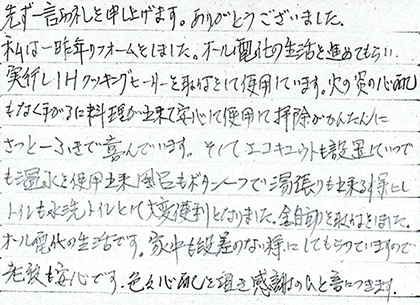 先ず一言お礼を申し上げます。ありがとうございました。
私は一昨年リフォームをしました。オール電化の生活を進めてもらい
実行しIHクッキングヒーターを取付けして使用しています。火の災の心配
もなく手がるに料理が出来て安心して使用して掃除がかんたんに
さっと一ふきで喜んでいます。そしてエコキュウトも設置していつで
も温水を使用出来風呂もボタン一つで湯張りも出来る様にし
トイレも水洗トイレとして大変便利となりました。全自動を取付けました。
オール電化の生活です。家中も段差のない様にしてもらっていますので
老後も安心です。色々心配を頂き感謝の一と言につきます。